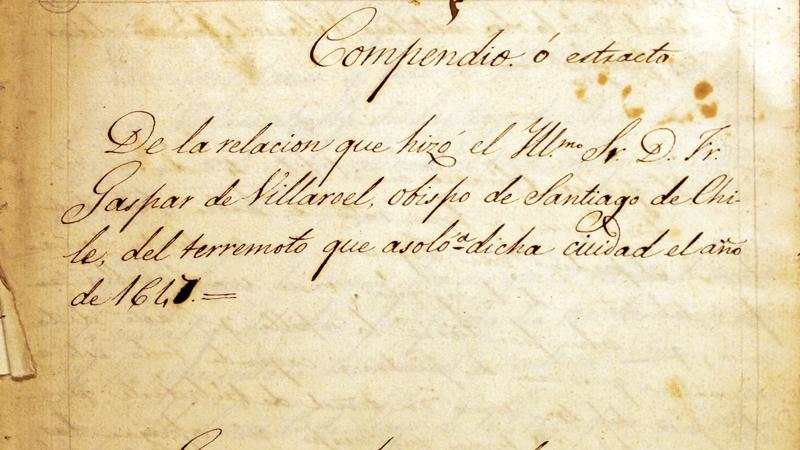 Compendio. ó estracto
De la relacion que hizó el Ill.mo Sr. D. Fr.
Gaspar de Villaroel, obispo de Santiago de Chi-
le, del terremoto que asoló a dicha ciudad el año
de 1647.=